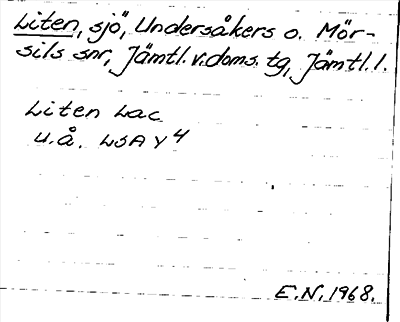 Liten, sjö, Undersåkers o. Mör-
sils snr, Jämtl. v. doms. tg, Jämtl. l.
Liten Lac
u.å. LSA Y4
E.N. 1968.